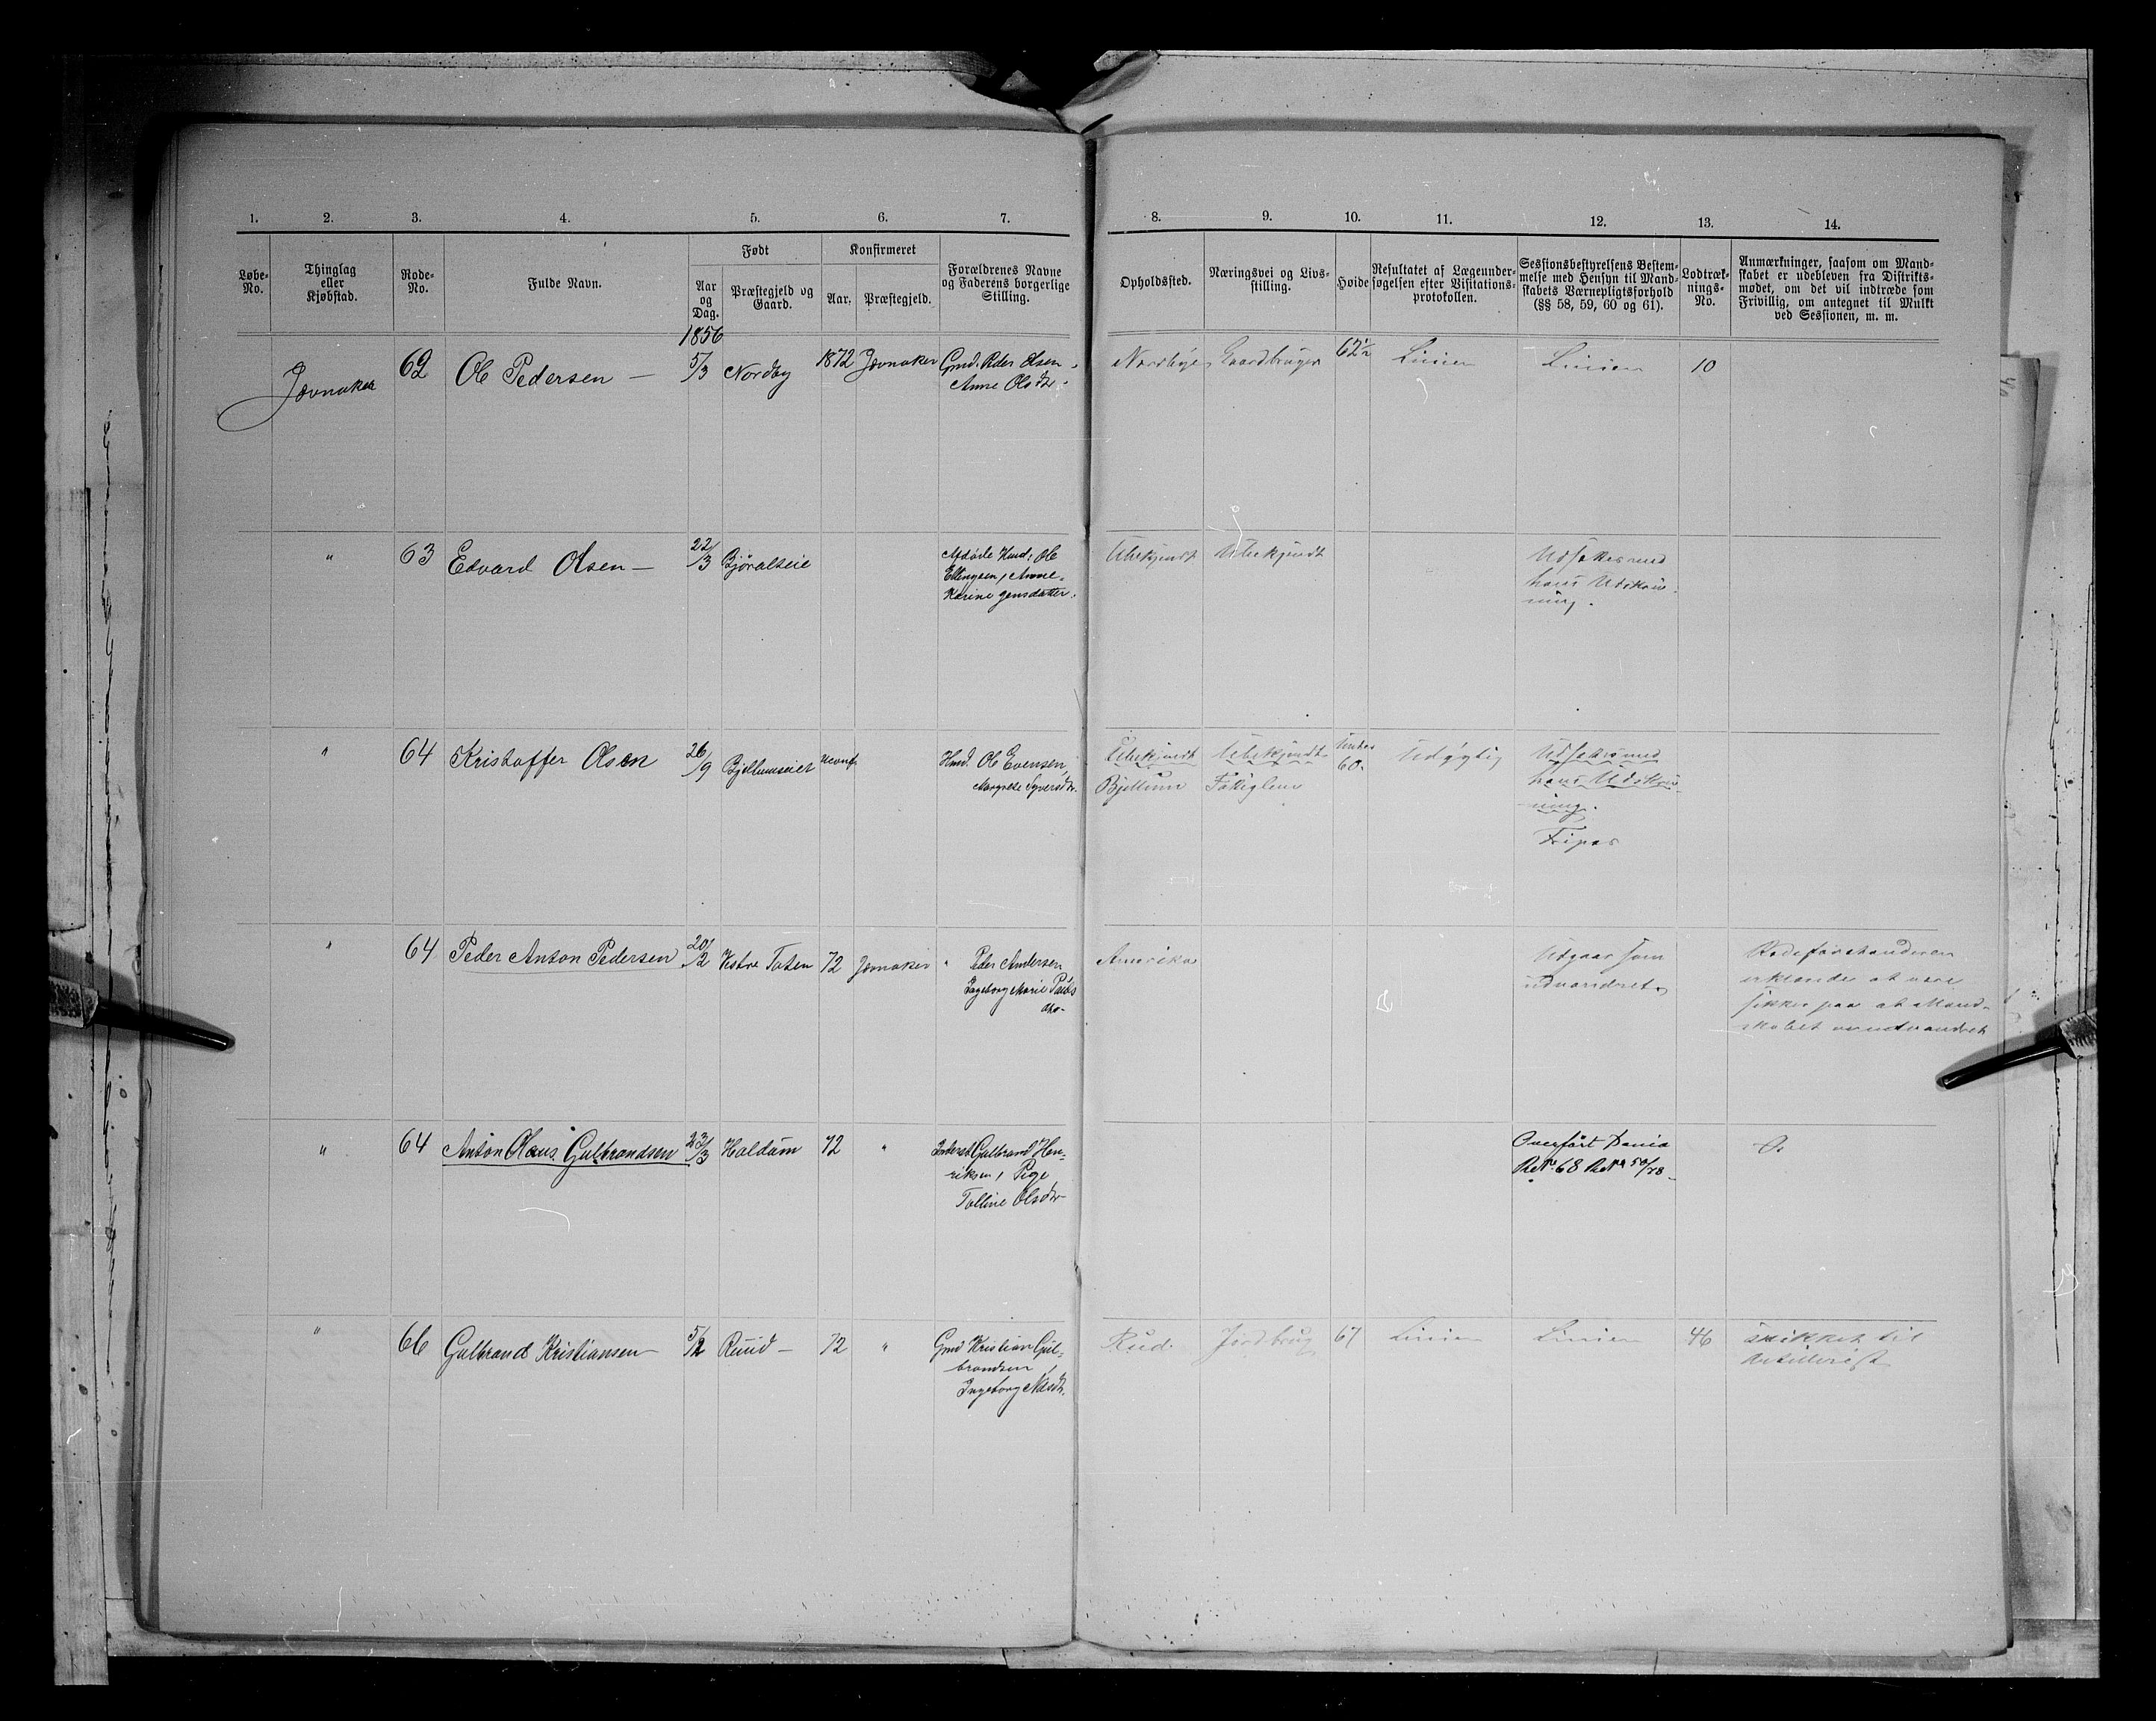 1. 2. 3. 4. 5. 6. 7. 8. 9. 10. 11. 12. 13. 14.
Løbe-No.
Thinglag eller Kjøbstad.
Rode-No.
Fulde Navn.
Født
Aar og Dag.
Præstegjeld og Gaard.
Konfirmeret
Aar.
Præstegjeld.
Forældrenes Navne og Faderens borgerlige Stilling.
Opholdssted.
Næringsvei og Livsstilling.
Høide
Resultatet af Lægeundersøgelsen efter Visitationsprotokollen.
Sessionsbestyrelsens Bestemmelse med Hensyn til Mandskabets Værnepligtsforhold (§§ 58, 59, 60 og 61).
Lodtrækningsno.
Anmærkninger, saasom om Mandskabet er udebleven fra Distriktsmødet, om det vil indtræde som Frivillig, om antegnet til Mulkt ved Sessionen, m. m.
1856
Jevnaker 62 Ole Pedersen — 5/3 Nordby 1872 Jevnaker Gmd. Peder Olsen
Anne Olsdtr.
Nordbye Gaardbruger 62½ Linien Linien 10
" 63 Edvard Olsen — 22/3 Bjøralseie
Afdøde Husmd. Ole
Ellingsen, Anne
Karine Jensdatter.
Ubekjendt Ubekjendt
Udsættes med
hans Udskriv-
ning.
" 64 Kristoffer Olsen 26/9 Bjellumseiet Uconf.
Husmd. Ole Evensen,
Margrete Syversdtr.
Ubekjendt Ubekjendt
60. Udygtig
Udsættes med
hans Udskriv-
ning.
Bjellum Fattiglem
Fripas
" 64 Peder Anton Pedersen 20/2 Vestre Toten 72 Jevnaker "
Peder Andersen
Ingeborg Marie Pauls
dtr.
Amerika
Udgaar som
udvandret.
Rodeforstanderen
erklærede at være
sikker paa at Mand-
skabet er udvandret
" 64 Anton Olaus Gulbrandsen 23/3 Haldum 72 "
Inderst Gulbrand Hen-
riksen, Pige
Tolline Olsdtr
Overført Dania
0.
" 66 Gulbrand Kristiansen 5/2 Ruud — 72 "
Gmd Kristian Gul-
brandsen,
Ingeborg Nilsdtr.
Rud. Jordbrug 67 Linien Linien 46
skikket til
Artillerist